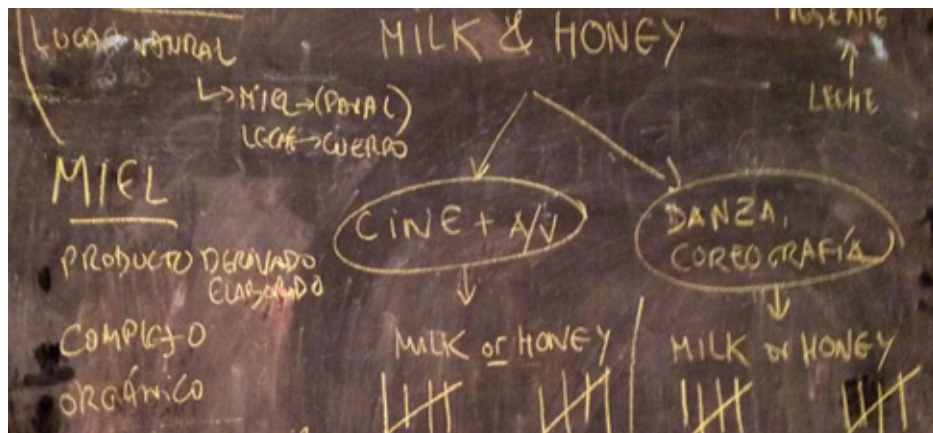 LUGAR NATURAL
↳ MIEL → (PANAL)
LECHE → CUERPO
MIEL
PRODUCTO DERIVADO
ELABORADO
COMPLEJO
ORGÁNICO
MILK & HONEY
CINE + A/V
MILK or HONEY
DANZA,
COREOGRAFÍA
MILK or HONEY
PRESENTE
↑
LECHE